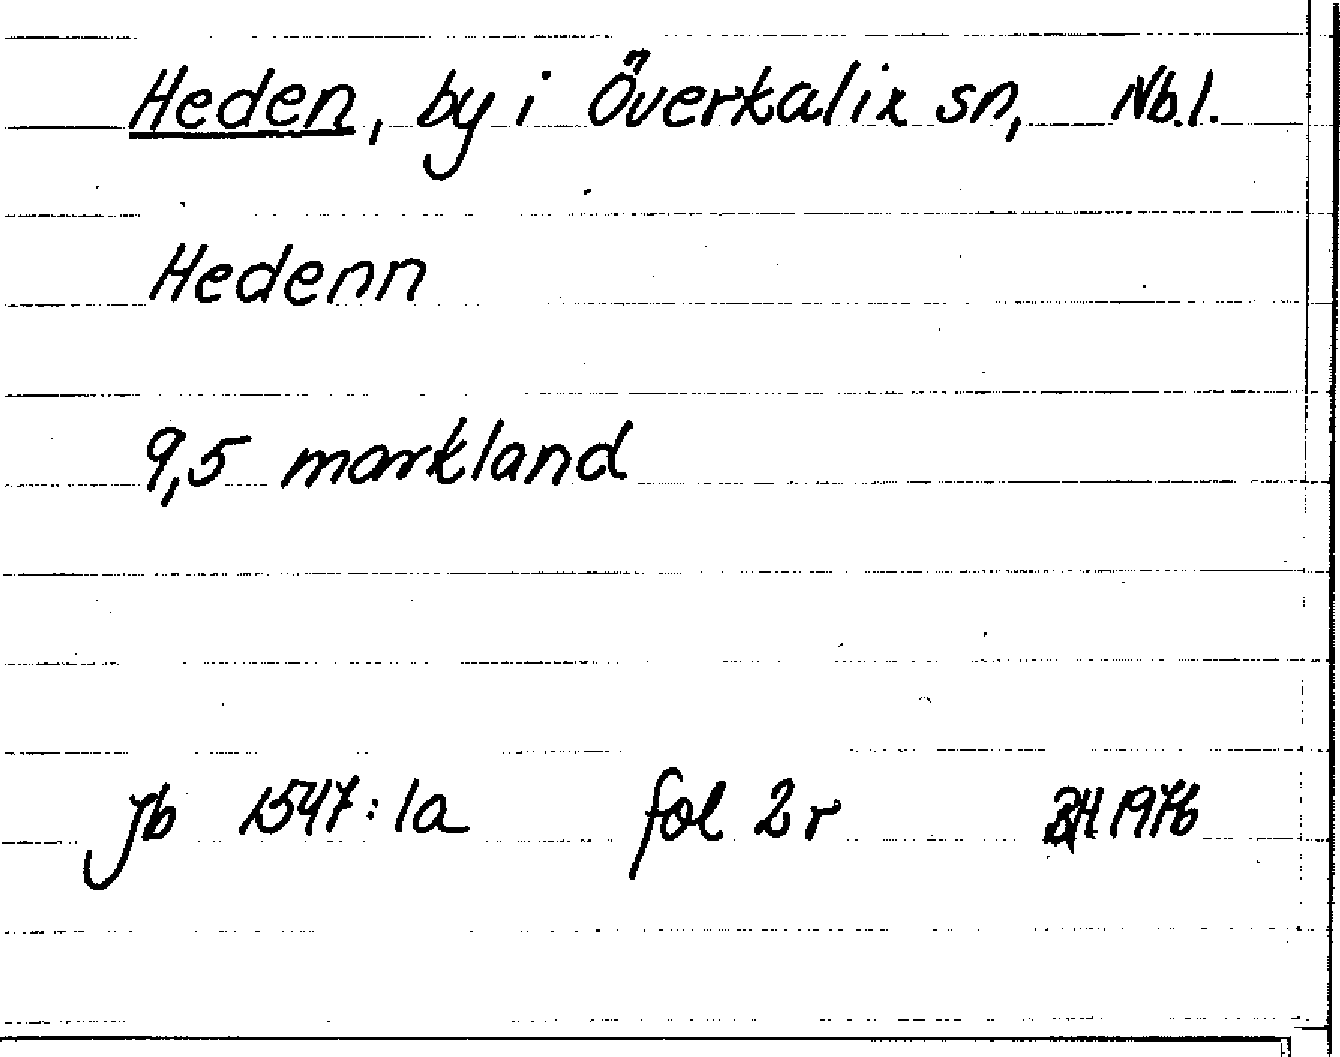 Heden, by i Överkalix sn, Nb.l.
Hedenn
9,5 markland
jb 1547:1a fol 2r BH 1976